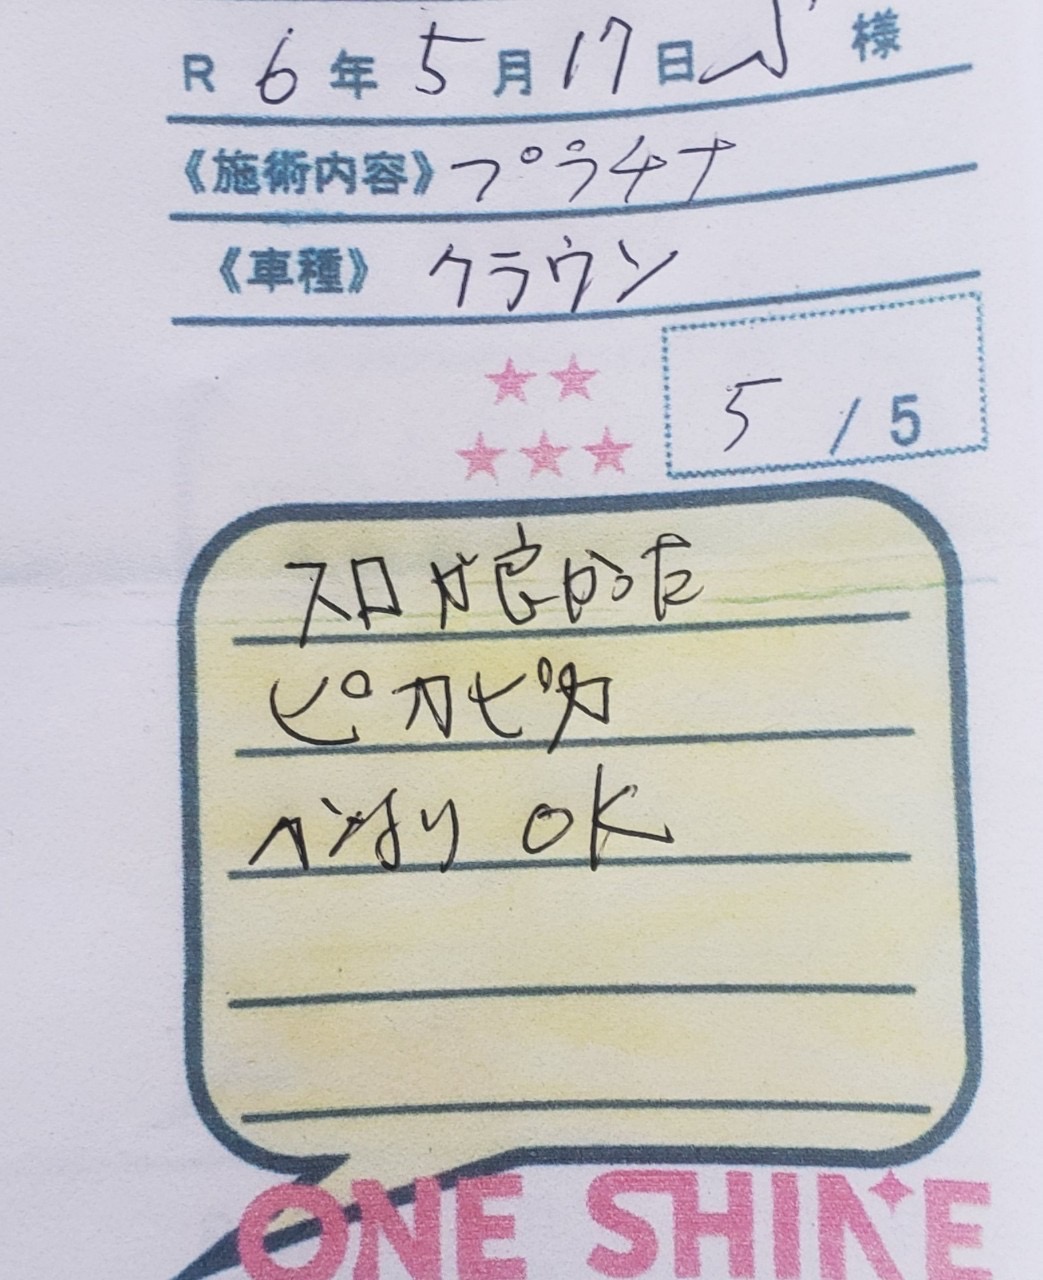 R 6年 5月 17日 様
《施術内容》プラチナ
《車種》 クラウン
★★
5 / 5
★★★
スロが良かった
ピカピカ
OK
ONE SHINE